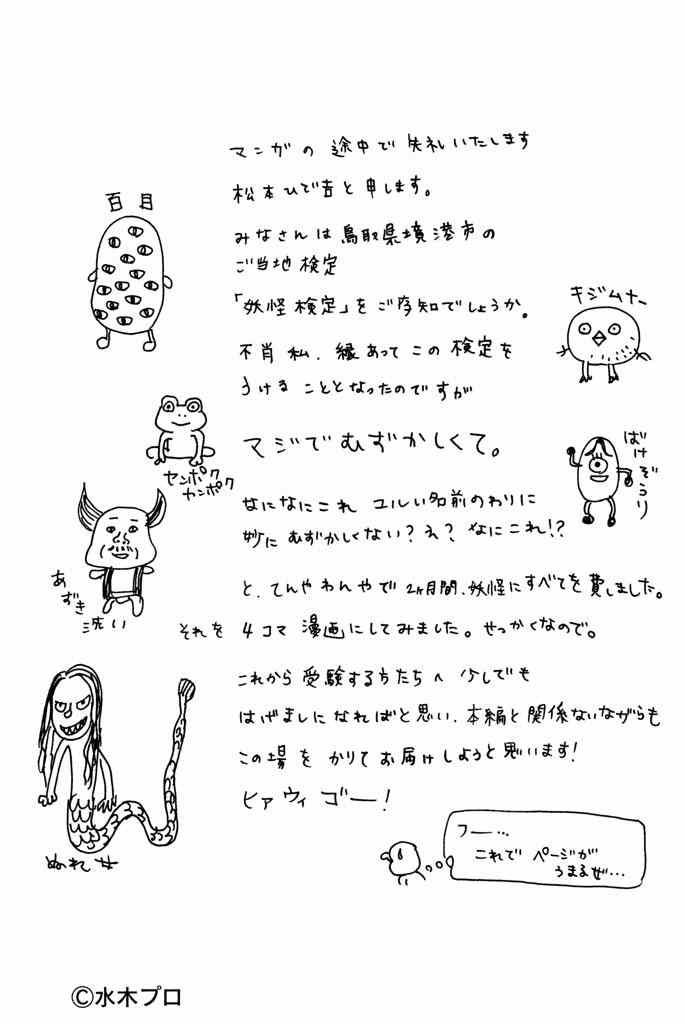 マンガの途中で失礼いたします
松本ひで吉と申します。
みなさんは鳥取県境港市の
ご当地検定
「妖怪検定」をご存知でしょうか。
不肖私、縁あってこの検定を
うけることとなったのですが
マジでむずかしくて。
なになにこれ ユルい名前のわりに
妙にむずかしくない？え？なにこれ!?
と、てんやわんやで2ヶ月間、妖怪にすべてを費しました。
それを4コマ漫画にしてみました。せっかくなので。
これから受験する方たちへ少しでも
はげましになればと思い、本編と関係ないながらも
この場をかりてお届けしようと思います！
ヒァウィゴー！
百目
キジムナー
センポク
カンポク
ばけぞうり
あずき
洗い
ぬれ女
フー…
これでページが
うまるぜ…
©水木プロ